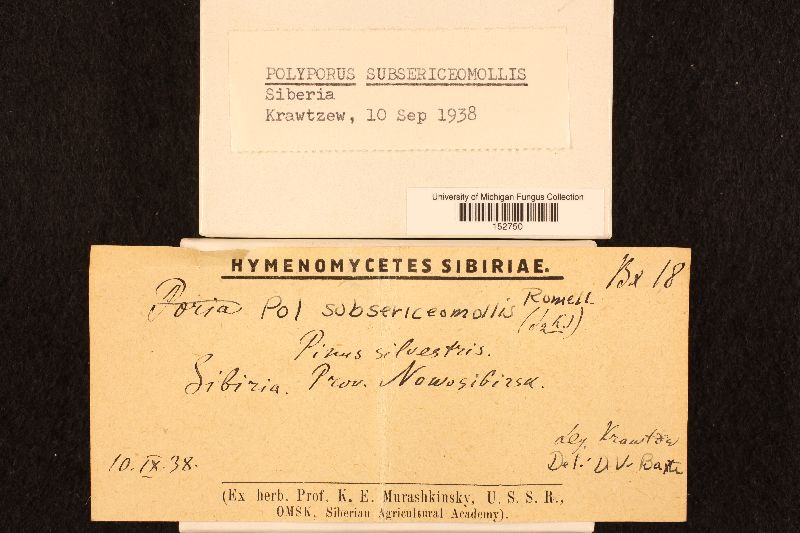 POLYPORUS SUBSERICEOMOLLIS
Siberia
Krawtzew, 10 Sep 1938
University of Michigan Fungus Collection
152750
HYMENOMYCETES SIBIRIAE.
Bx 18
Poria Pol subsericeomollis Romell
Pinus silvestris.
Sibiria. Prov. Nowosibirsk.
Leg. Krawtzew
10.IX.38.
Det: D.V. Baxter
(Ex herb. Prof. K. E. Murashkinsky, U. S. S. R.,
OMSK, Siberian Agricultural Academy).